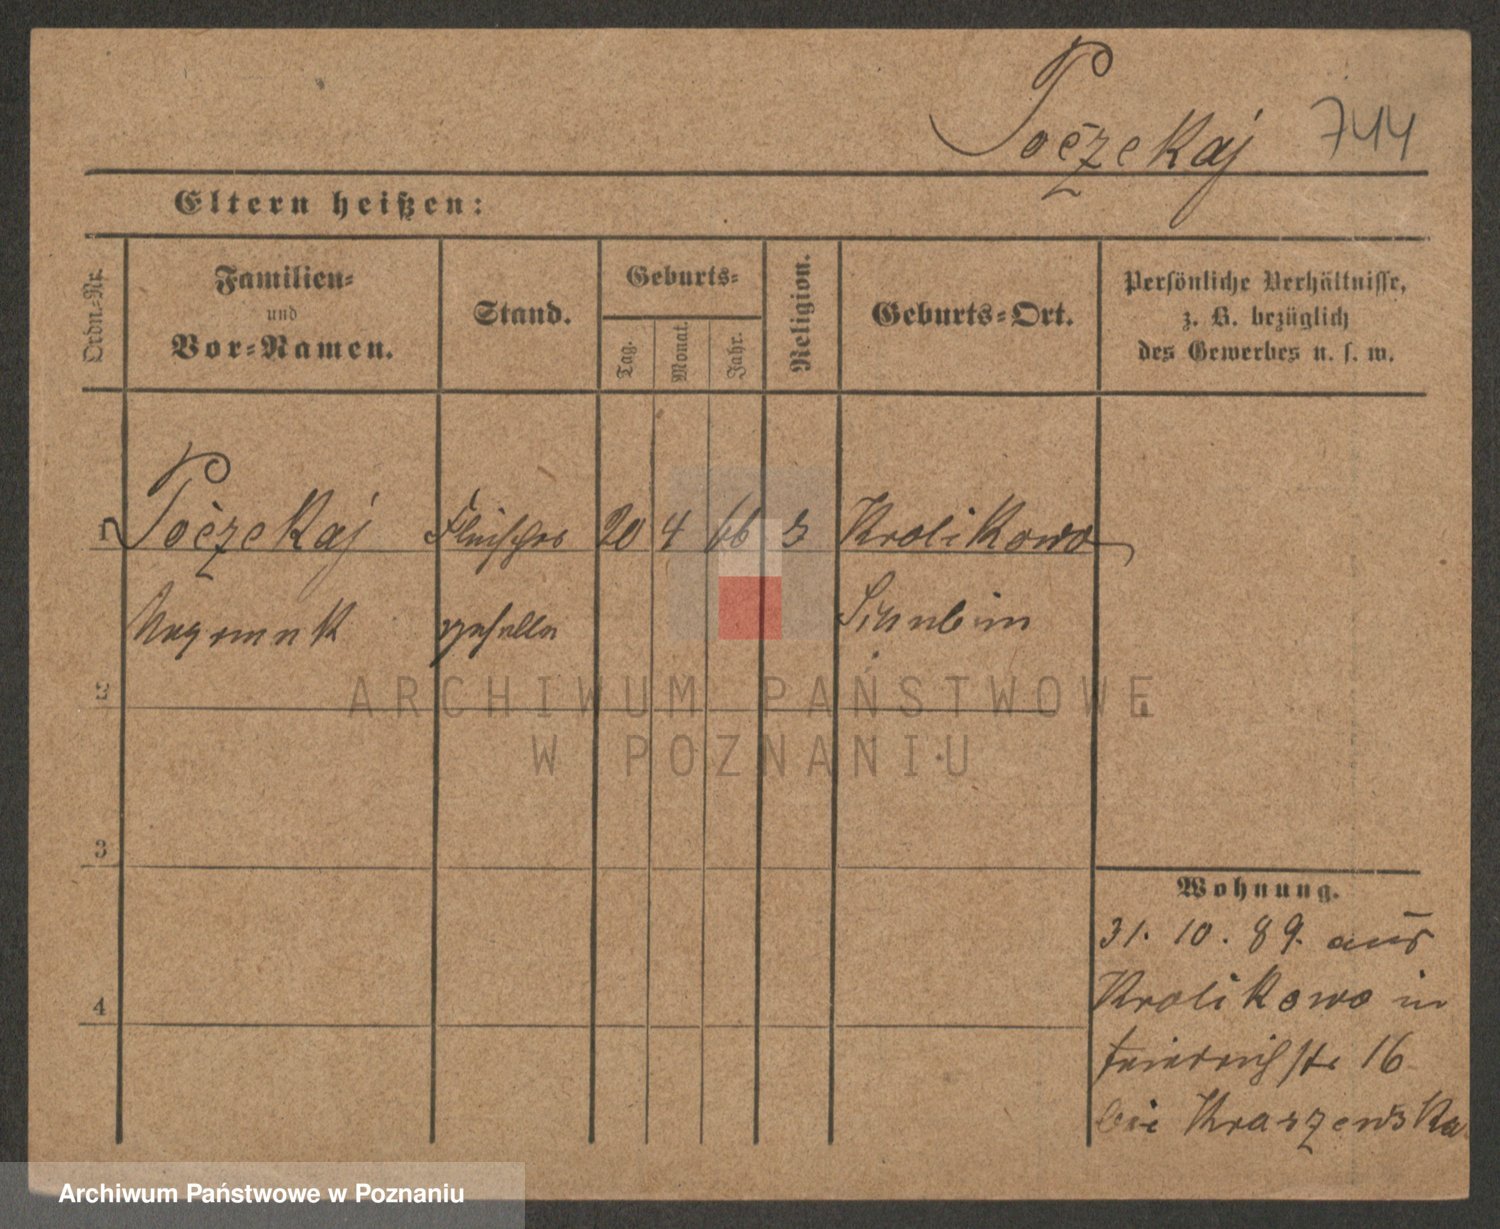 Poczekaj 744
Eltern heißen:
Ordn.-Nr.
Familien-
und
Vor-Namen.
Stand.
Geburts-
Tag.
Monat.
Jahr.
Religion.
Geburts-Ort.
Persönliche Verhältnisse,
z. B. bezüglich
des Gewerbes u. s. w.
1 Poczekaj Fleischer 20 4 66 Krolikowo
geselle Schubin
2
ARCHIWUM PAŃSTWOWE
W POZNANIU
3
Wohnung.
31. 10. 89. aus
4 Krolikowo in
Friedrichstr 16
bei Kraszewska
Archiwum Państwowe w Poznaniu